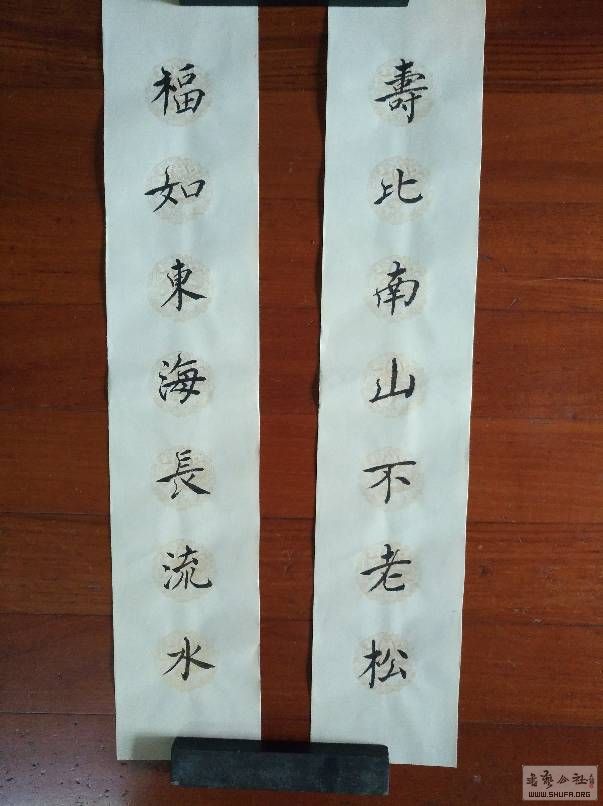 壽比南山不老松
福如東海長流水
書藝公社
WWW.SHUFA.ORG